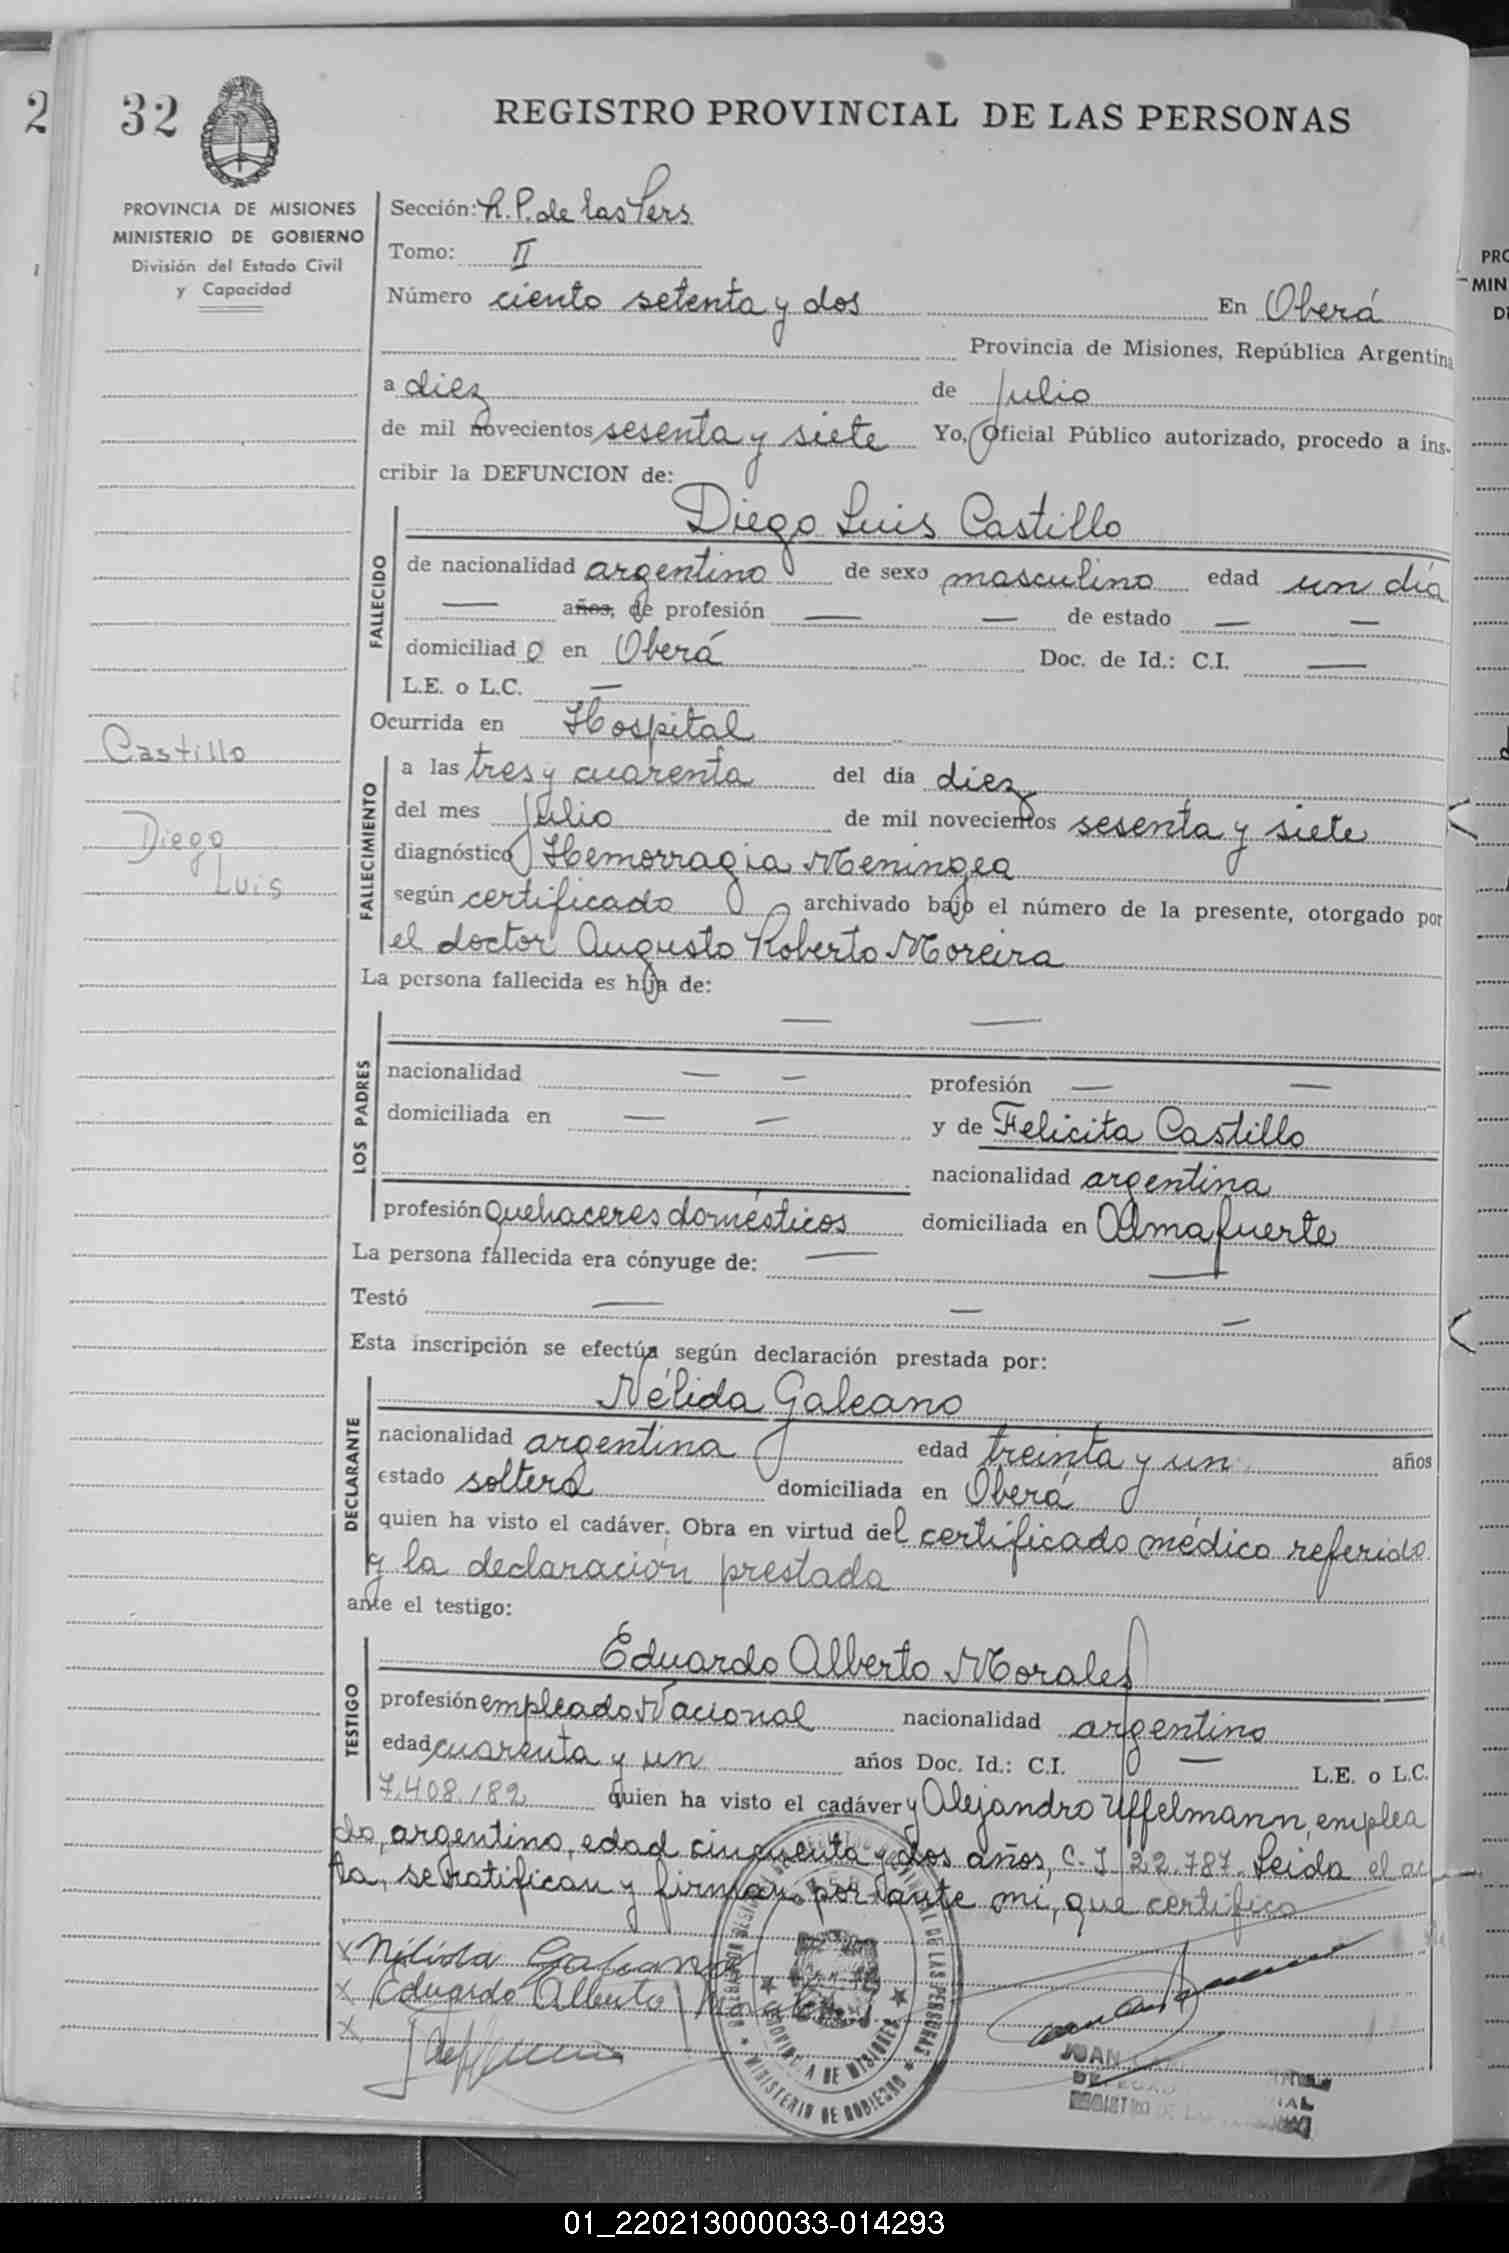 2
32
REGISTRO PROVINCIAL DE LAS PERSONAS
PROVINCIA DE MISIONES
MINISTERIO DE GOBIERNO
División del Estado Civil
y Capacidad
Sección: R. P. de las Pers
Tomo: II
Número ciento setenta y dos En Oberá
Provincia de Misiones, República Argentina
a diez de Julio
de mil novecientos sesenta y siete Yo, Oficial Público autorizado, procedo a ins-
cribir la DEFUNCION de:
Diego Luis Castillo
FALLECIDO
de nacionalidad argentino de sexo masculino edad un día
— años, de profesión — — de estado — —
domiciliado en Oberá Doc. de Id.: C.I. —
L.E. o L.C. —
Ocurrida en Hospital
Castillo
Diego
Luis
FALLECIMIENTO
a las tres y cuarenta del día diez
del mes Julio de mil novecientos sesenta y siete
diagnóstico Hemorragia Meningea
según certificado archivado bajo el número de la presente, otorgado por
el doctor Augusto Roberto Moreira
La persona fallecida es hija de:
LOS PADRES
— —
nacionalidad — — profesión — —
domiciliada en — — y de Felicita Castillo
nacionalidad argentina
profesión Quehaceres domésticos domiciliada en Almafuerte
La persona fallecida era cónyuge de: — —
Testó — — —
Esta inscripción se efectúa según declaración prestada por:
DECLARANTE
Nélida Galeano
nacionalidad argentina edad treinta y un años
estado soltera domiciliada en Oberá
quien ha visto el cadáver. Obra en virtud del certificado médico referido
y la declaración prestada
ante el testigo:
TESTIGO
Eduardo Alberto Morales
profesión empleado Nacional nacionalidad argentino
edad cuarenta y un años Doc. Id.: C.I. — L.E. o L.C.
7.408.182 quien ha visto el cadáver y Alejandro Uffelmann, emplea
do, argentino, edad cincuenta y dos años, C.I 22.787. Leida el ac
ta, se ratifican y firman por ante mi, que certifico
x Nélida Galeano
x Eduardo Alberto Morales
x
PROVINCIA DE MISIONES
MINISTERIO DE GOBIERNO
JUAN
01_220213000033-014293